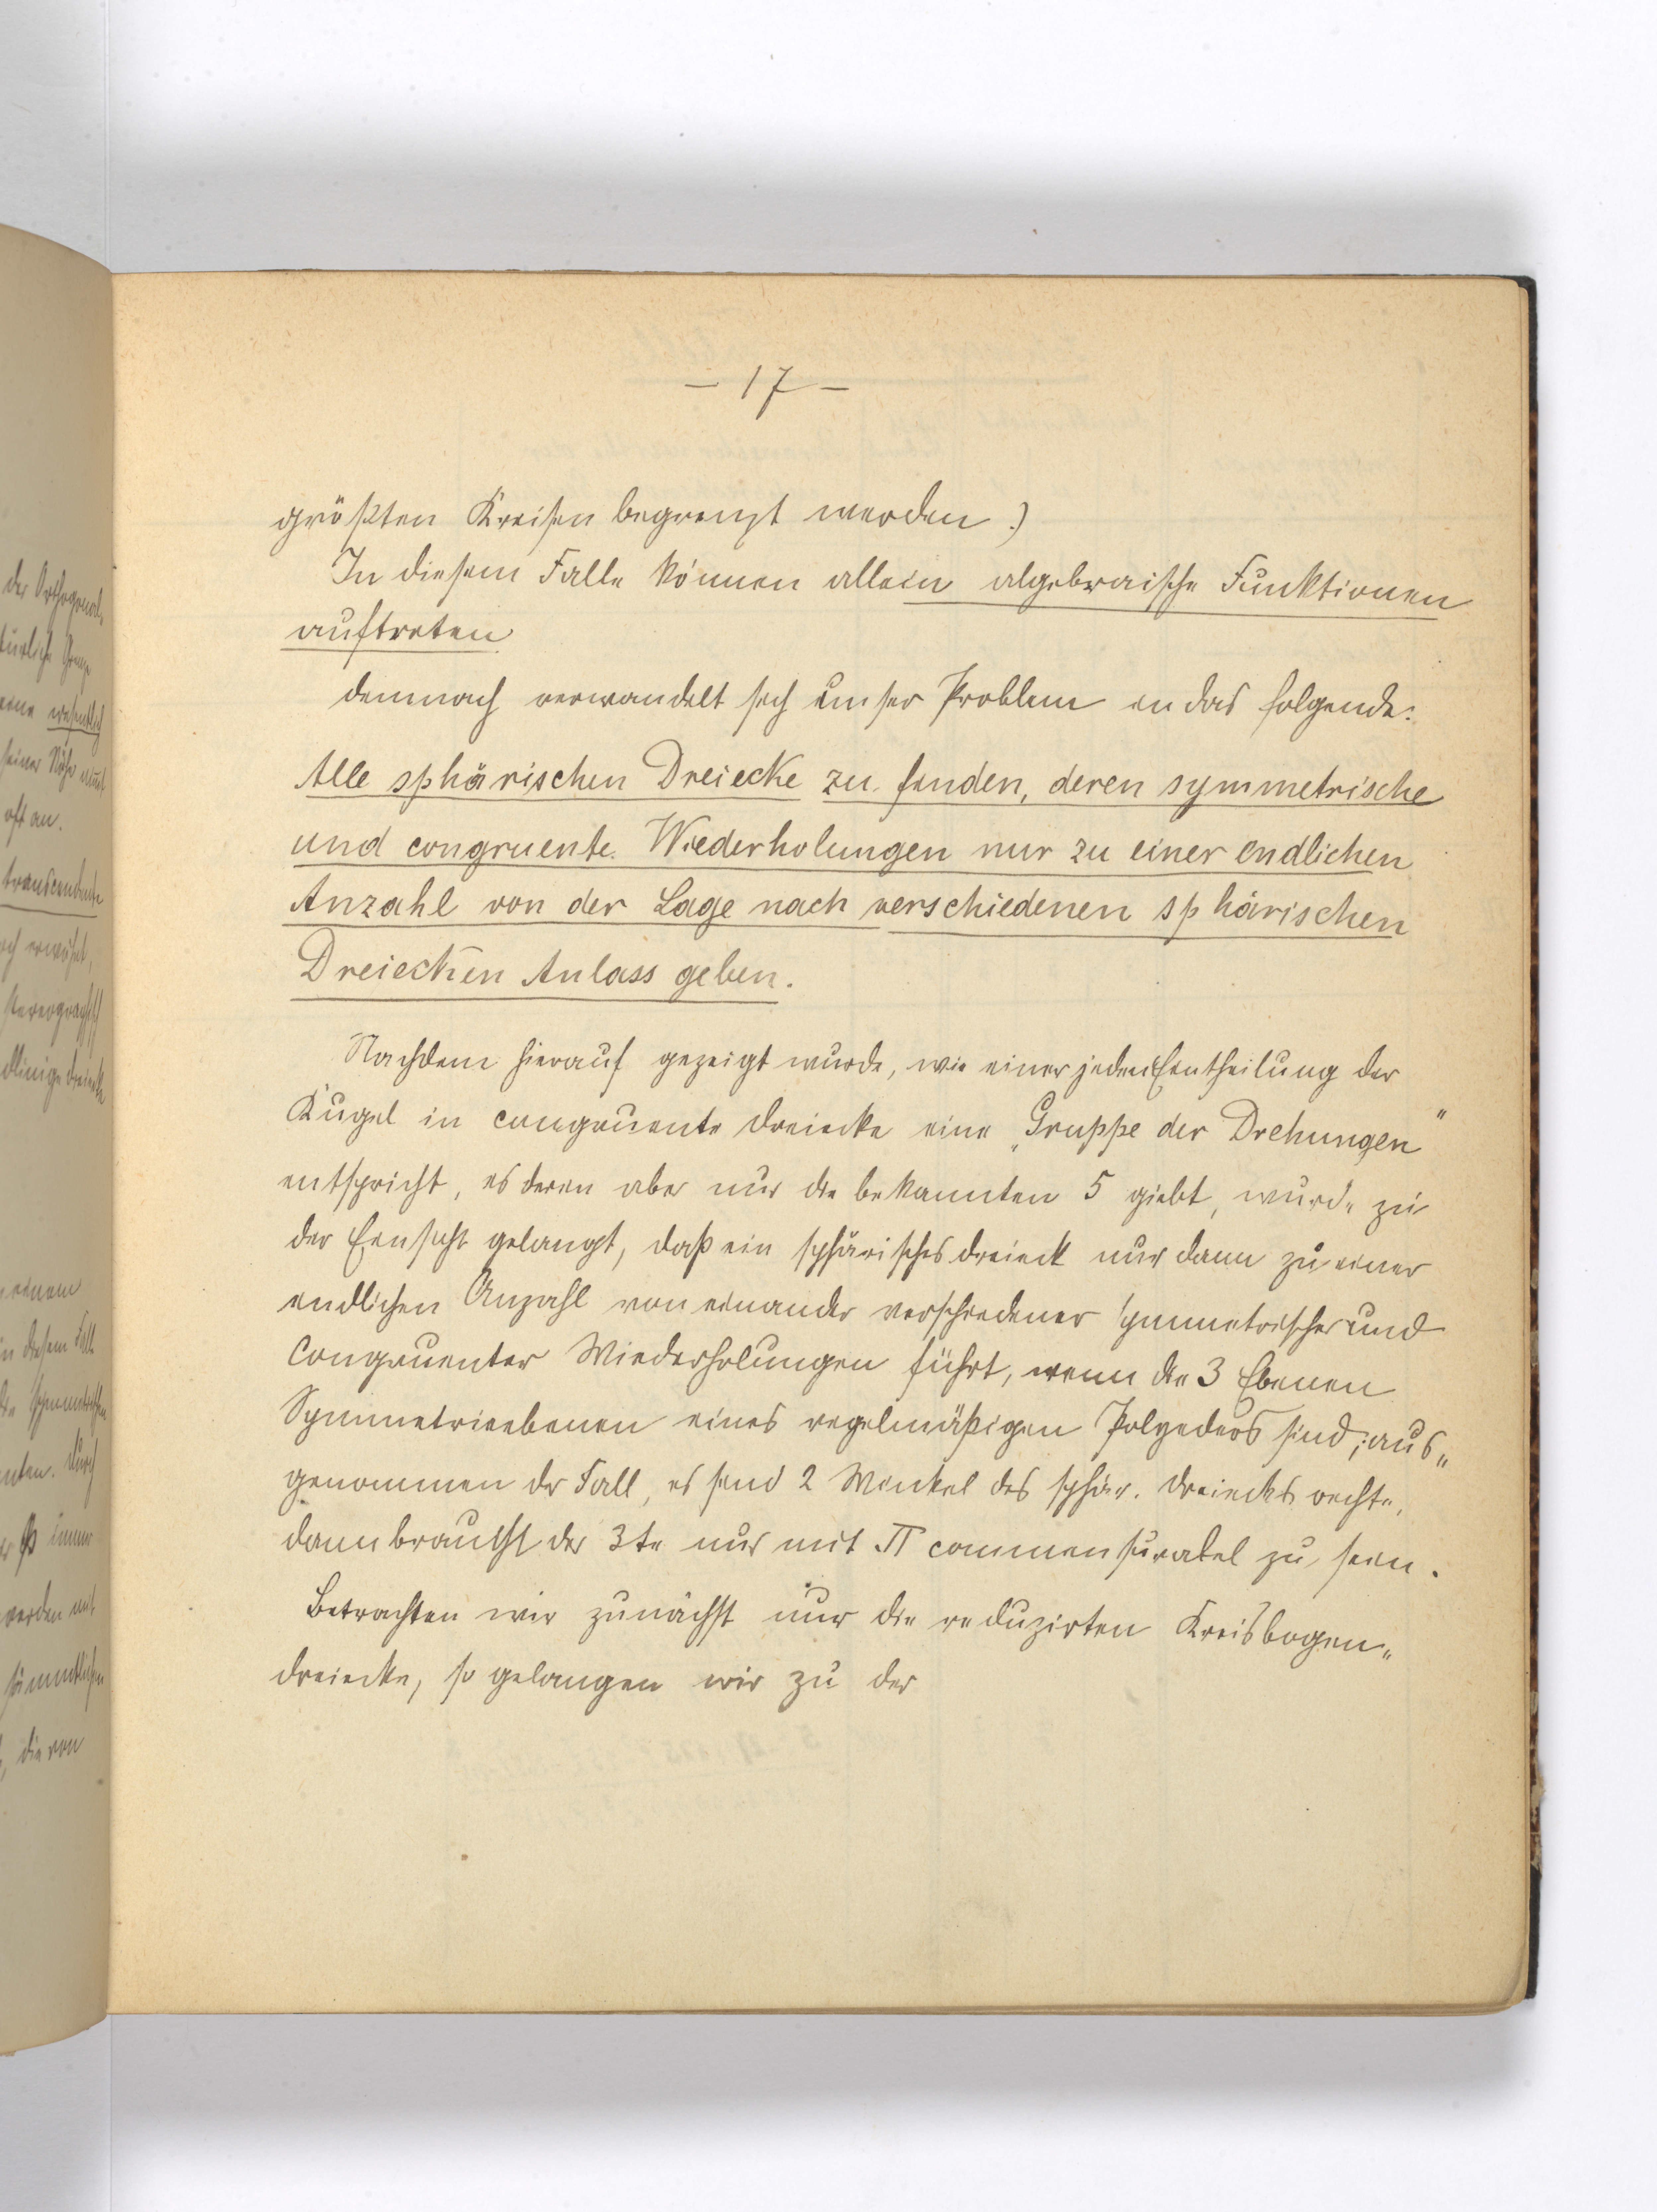 — 17 —
größten Kreisen begrenzt werden.)
In diesem Falle können allein algebraische Funktionen
auftreten
demnach verwandelt sich unser Problem in das folgende:
Alle sphärischen Dreiecke zu finden, deren symmetrische
und congruente Wiederholungen nur zu einer endlichen
Anzahl von der Lage nach verschiedenen sphärischen
Dreiecken Anlass geben.
Nachdem hierauf gezeigt wurde, wie einer jeden Eintheilung der
Kugel in congruente Dreiecke eine „Gruppe der Drehungen"
entspricht, es deren aber nur die bekannten 5 giebt, wurde zu
der Einsicht gelangt, daß ein sphärisches Dreieck nur dann zu einer
endlichen Anzahl von einander verschiedener symmetrischer und
congruenter Wiederholungen führt, wenn die 3 Ebenen
Symmetrieebenen eines regelmäßigen Polyeders sind; aus„
genommen der Fall, es sind 2 Winkel des sphär. Dreiecks rechte,
dann braucht der 3te nur mit π commensurabel zu sein.
Betrachten wir zunächst nur die reduzirten Kreisbogen„
dreiecke, so gelangen wir zu der
der Orthogonal„
türliche Grenze
eine wesentlich
seiner Nähe nimmt
oft an.
transcendente
stereographisch
dlinige Dreiecke
einem
in diesem Falle
die symmetrischen
nten. Durch
immer
werden mit
sämmtlichen
, die von